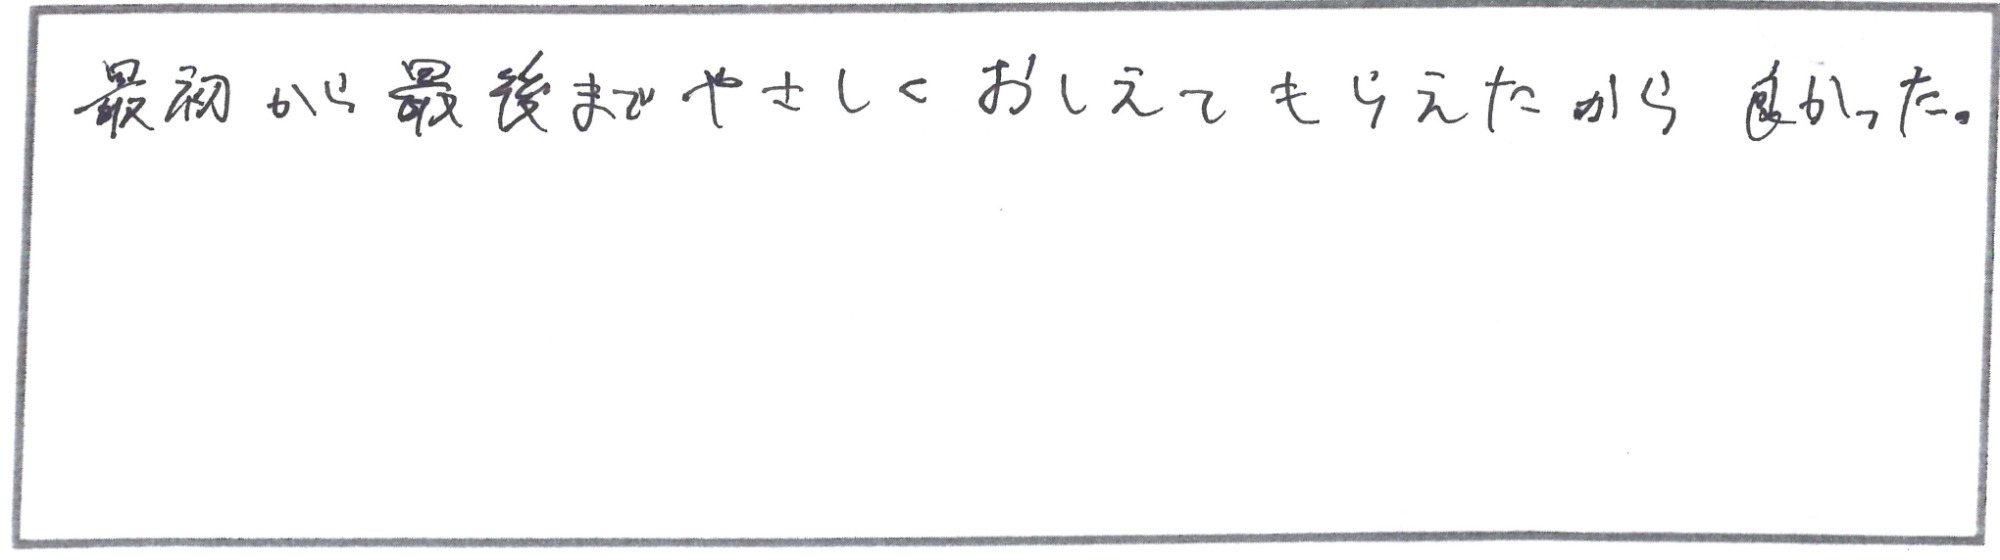 最初から最後までやさしくおしえてもらえたから良かった。